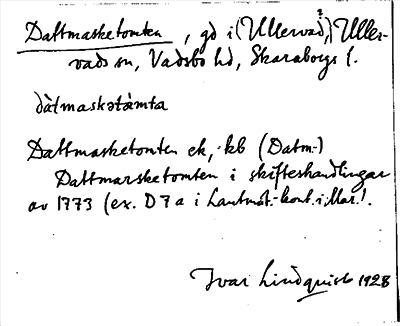 Dattmasketomten, gd i (Ullervad,) Uller-
vads sn, Vadsbo hd, Skaraborgs l.
dàtmaskətàmta
Dattmasketomten ek, kb (Datm-)
Dattmarsketomten i skifteshandlingar
av 1773 (ex. D 7 a i Lantmät.-kont. i Mar.).
Ivar Lindquist 1928